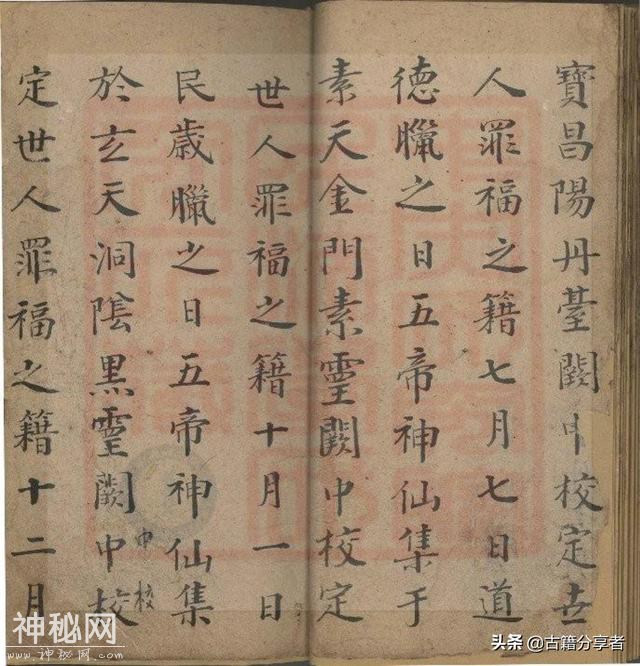 寶昌陽丹臺闕中校定世
人罪福之籍七月七日道
德臘之日五帝神仙集于
素天金門素靈闕中校定
世人罪福之籍十月一日
民歲臘之日五帝神仙集
於玄天洞陰黑靈闕中校
中校
定世人罪福之籍十二月
神秘网
www.神秘网.com
头条 @古籍分享者